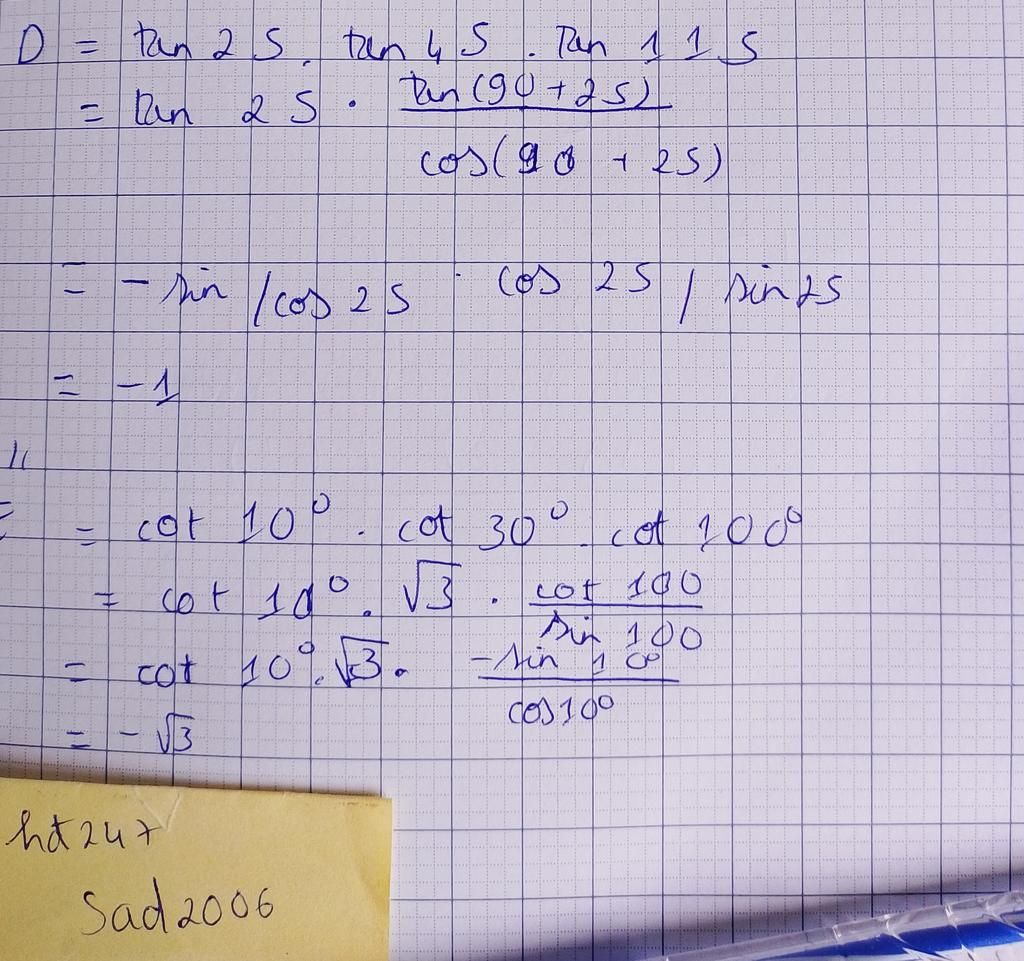 D = tan 25 . tan 45 . Tan 115
= tan 25 . tan(90 + 25) / cos(90 + 25)
= - sin / cos 25 . cos 25 / sin 25
= -1
= cot 10° . cot 30° . cot 100°
= cot 10° . √3 . cot 100 / sin 100
= cot 10° . √3 . -sin 10° / cos 10°
= - √3
hd247
Sad2006